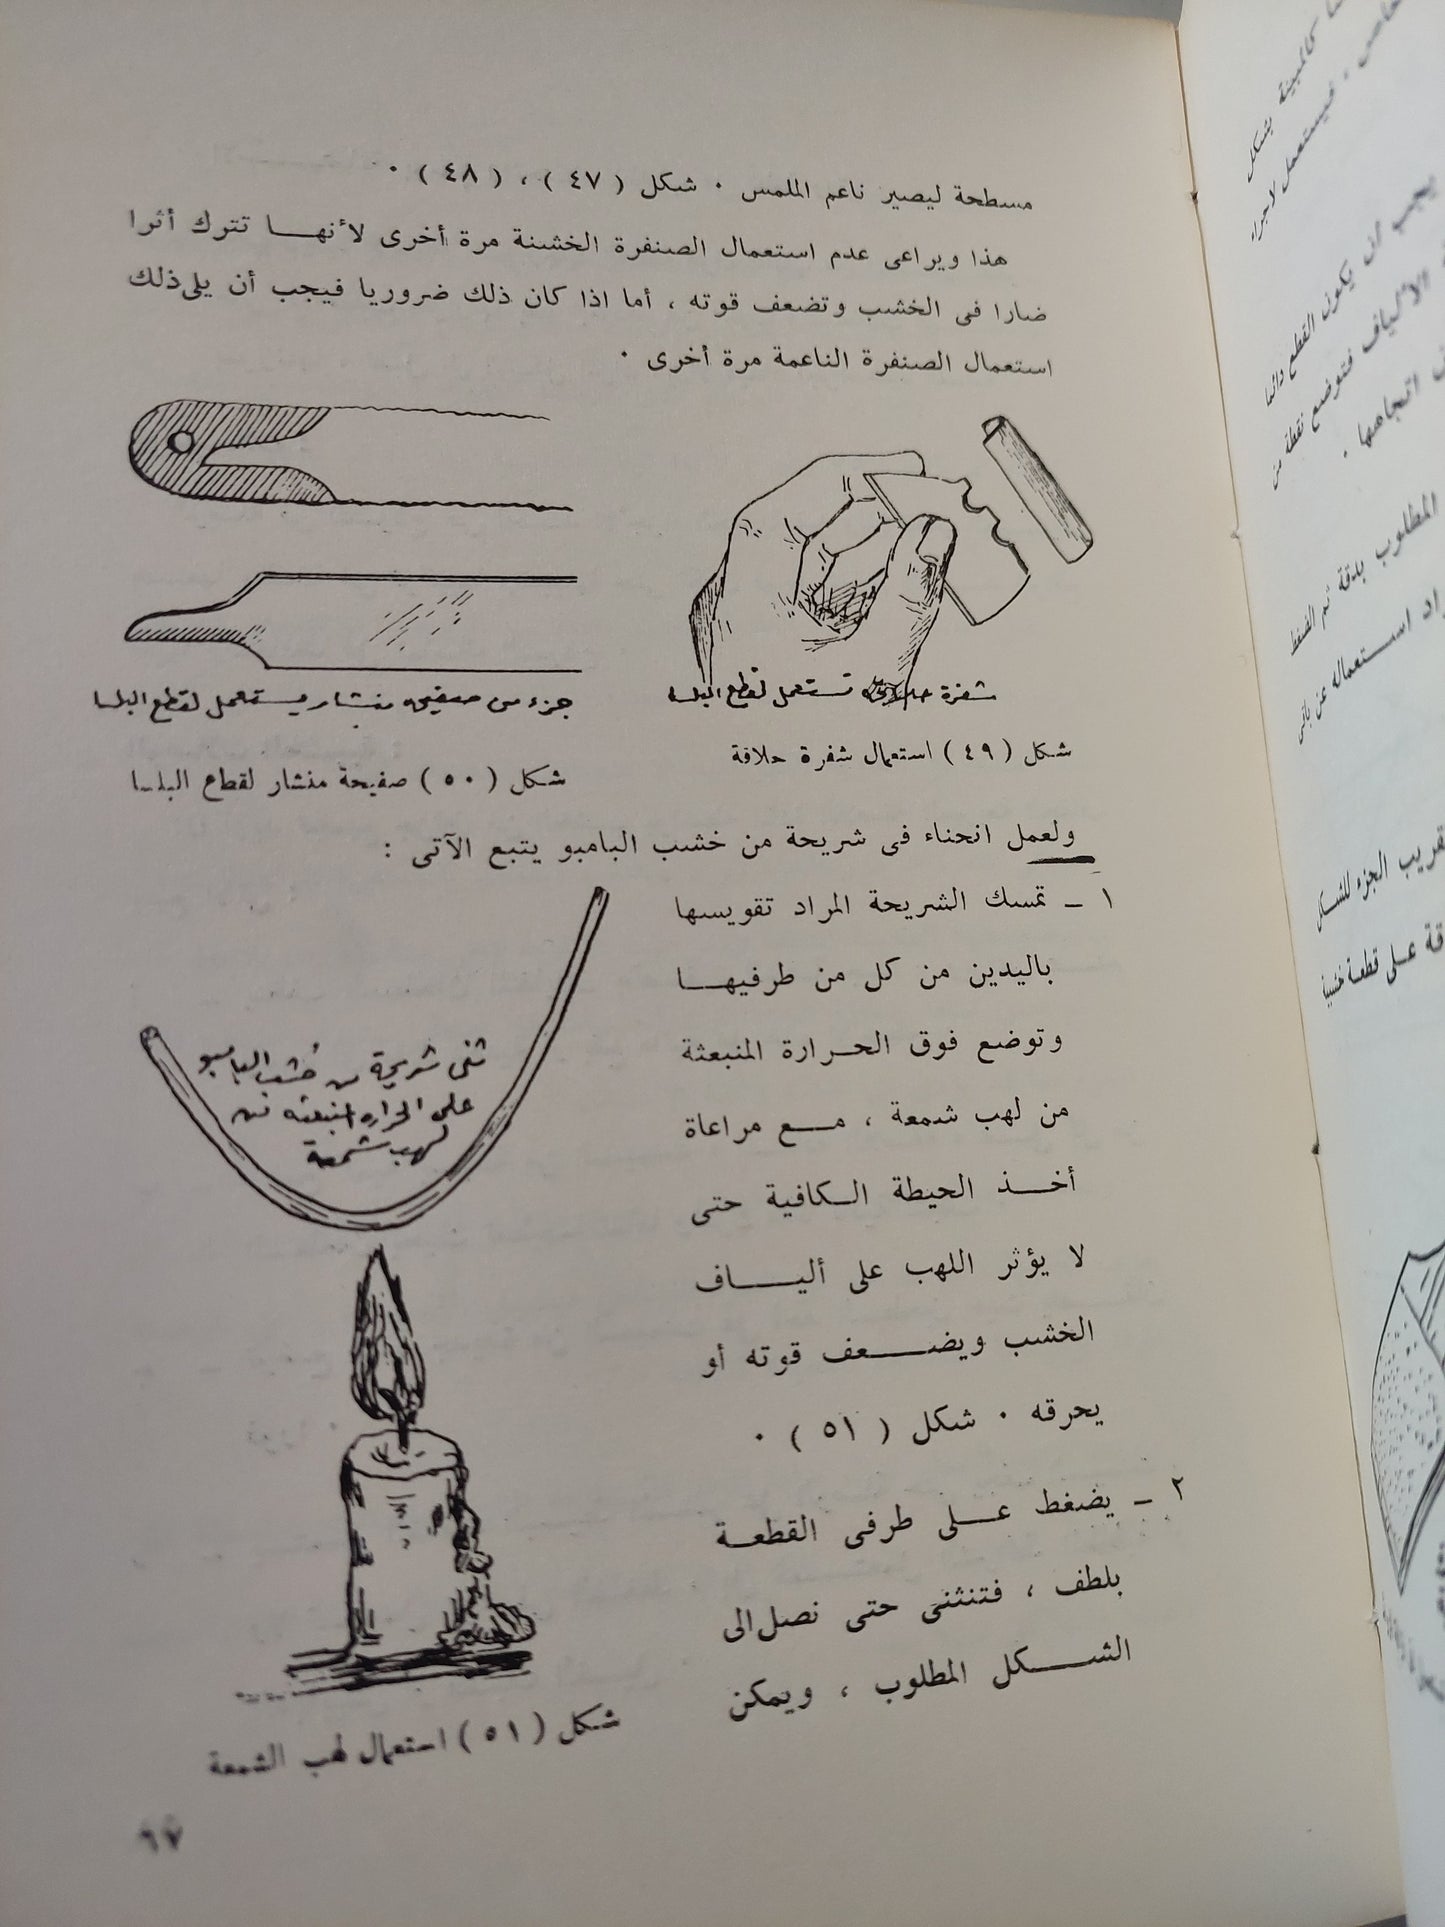 مسطحة ليصير ناعم الملمس ٠ شكل ( ٤٧ ) ، ( ٤٨ ) ٠
هذا ويراعى عدم استعمال الصنفرة الخشنة مرة أخرى لأنهــا تترك أثرا
ضارا فى الخشب وتضعف قوته ، أما اذا كان ذلك ضروريا فيجب أن يلى ذلك
استعمال الصنفرة الناعمة مرة أخرى ٠
شفرة حلاقة تستعمل لقطع البلسا
جزء من صفيحه منشار يستعمل لقطع البلسا
شكل ( ٤٩ ) استعمال شفرة حلاقة
شكل ( ٥٠ ) صفيحة منشار لقطاع البلسا
ولعمل انحناء فى شريحة من خشب البامبو يتبع الآتى :
١ ــ تمسك الشريحة المراد تقويسها
باليدين من كل من طرفيهــا
وتوضع فوق الحــرارة المنبعثة
من لهب شمعة ، مــع مراعاة
أخــذ الحيطة الــكافية حتى
لا يؤثر اللهب على أليــــاف
الخشب ويضـــــعف قوته أو
يحرقه ٠ شكل ( ٥١ ) ٠
ثنى شريحة من خشب البامبو
على الحراره المنبعثه من
لهب شمعة
٢ ــ يضغط عــــلى طرفى القطعــة
بلطف ، فتنثنى حتى نصل الى
الشـــــكل المطلوب ، ويمكن
شكل ( ٥١ ) استعمال لهب الشمعة
٦٧
كالمبينة بشكل
فيستعمل لاجراء
يجب ان يكون القطع دائما
الألياف فتوضع نقطة من
اتجاهها ٠
المطلوب بدقة ثم الضغط
استعماله عن باقى
تقريب الجزء للشكل
على قطعة خشبية